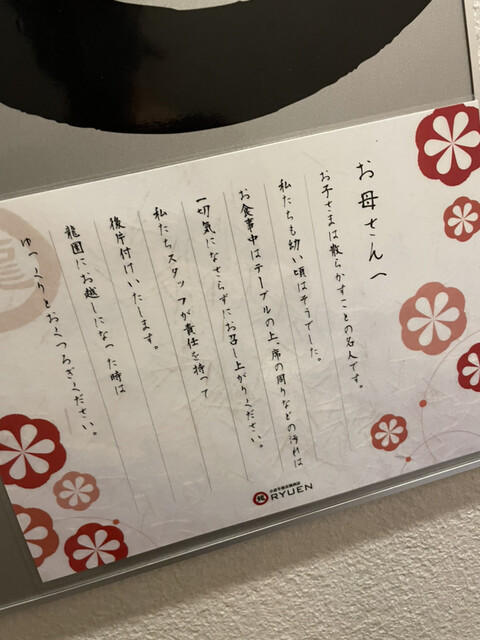 お母さんへ
お子さまは散らかすことの名人です。
私たちも幼い頃はそうでした。
お食事中はテーブルの上、席の周りなどの汚れは
一切気になさらずにお召し上がりください。
私たちスタッフが責任を持って
後片付けいたします。
龍園にお越しになった時は
ゆっくりとおくつろぎください。
RYUEN